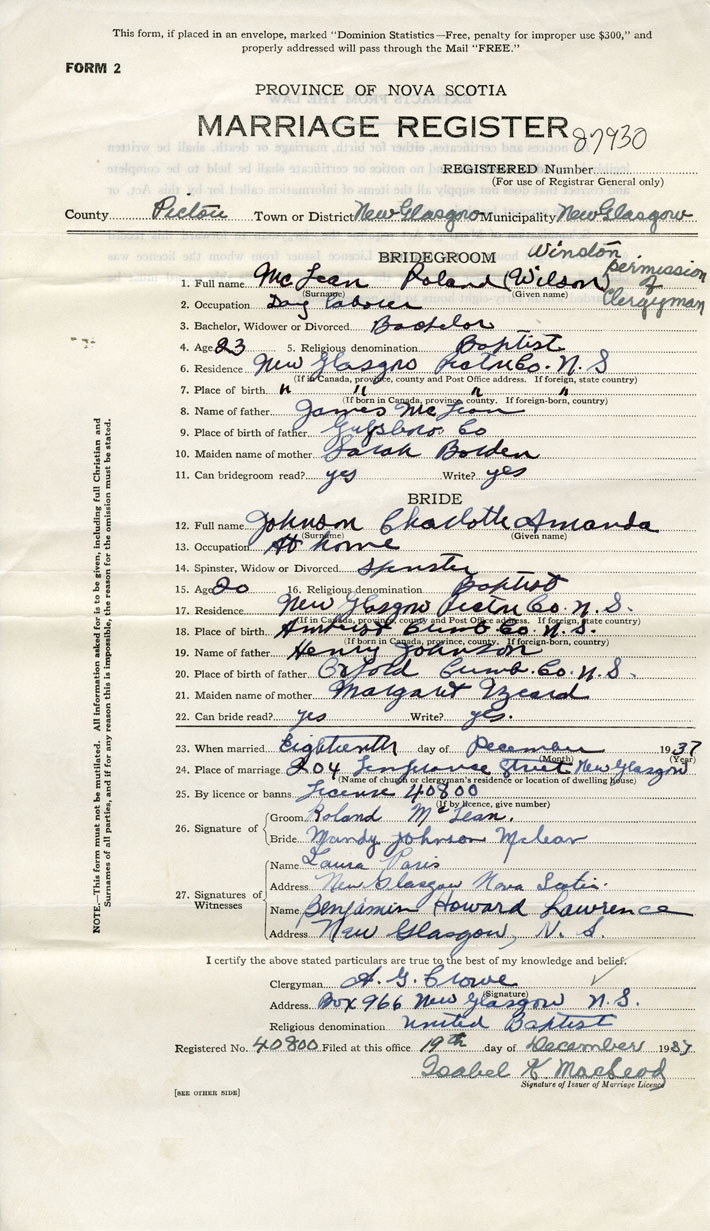 This form, if placed in an envelope, marked "Dominion Statistics—Free, penalty for improper use $300," and
properly addressed will pass through the Mail "FREE."
FORM 2
PROVINCE OF NOVA SCOTIA
MARRIAGE REGISTER 87930
REGISTERED Number
(For use of Registrar General only)
County Pictou Town or District New Glasgow Municipality New Glasgow
BRIDEGROOM Winston permission of Clergyman
1. Full name McLean Roland (Wilson)
(Surname) (Given name)
2. Occupation Day Laborer
3. Bachelor, Widower or Divorced Bachelor
4. Age 23 5. Religious denomination Baptist
6. Residence New Glasgow Pictou Co. N. S
(If in Canada, province, county and Post Office address. If foreign, state country)
7. Place of birth " " " "
(If born in Canada, province, county. If foreign-born, country)
8. Name of father James McLean
9. Place of birth of father Guysboro Co
10. Maiden name of mother Sarah Borden
11. Can bridegroom read? yes Write? yes
BRIDE
12. Full name Johnson Charlotte Amanda
(Surname) (Given name)
13. Occupation At home
14. Spinster, Widow or Divorced Spinster
15. Age 20 16. Religious denomination Baptist
17. Residence New Glasgow Pictou Co. N. S.
(If in Canada, province, county and Post Office address. If foreign, state country)
18. Place of birth Amherst Cumb. Co. N. S.
(If born in Canada, province, county. If foreign-born, country)
19. Name of father Henry Johnson
20. Place of birth of father Oxford Cumb. Co. N. S.
21. Maiden name of mother Margaret Izeard
22. Can bride read? yes Write? yes.
23. When married Eighteenth day of December 1937
(Month) (Year)
24. Place of marriage 204 Street New Glasgow
(Name of church or clergyman's residence or location of dwelling house)
25. By licence or banns License 40800
(If by licence, give number)
26. Signature of
Groom Roland McLean.
Bride Mandy Johnson Mclean
27. Signatures of Witnesses
Name Laura Paris
Address New Glasgow Nova Scotia.
Name Benjamin Howard Lawrence
Address New Glasgow, N. S.
I certify the above stated particulars are true to the best of my knowledge and belief.
Clergyman A. G. Crowe
(Signature)
Address Box 966 New Glasgow N. S.
Religious denomination United Baptist
Registered No. 40800 Filed at this office 19th day of December 1937
Isabel K MacLeod
Signature of Issuer of Marriage Licence
[SEE OTHER SIDE]
NOTE.—This form must not be mutilated. All information asked for is to be given, including full Christian and
Surnames of all parties, and if for any reason this is impossible, the reason for the omission must be stated.